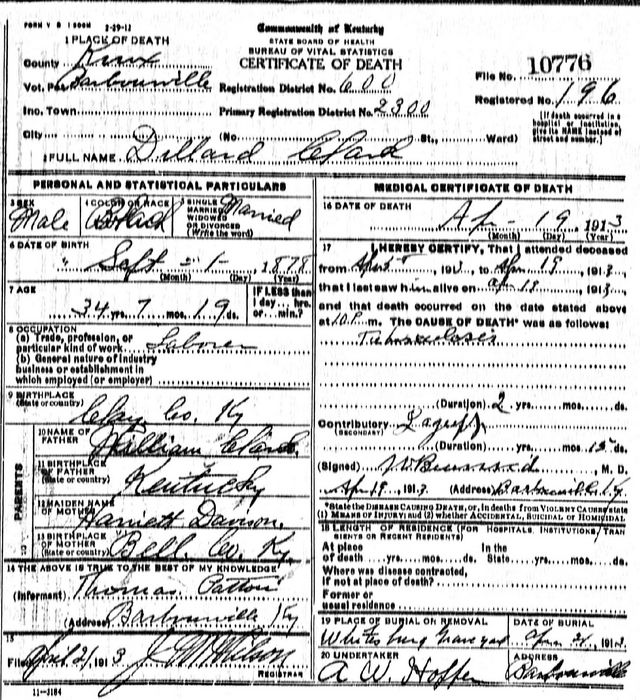 FORM V S 1 500M 2-29-12
Commonwealth of Kentucky
STATE BOARD OF HEALTH
BUREAU OF VITAL STATISTICS
CERTIFICATE OF DEATH
1 PLACE OF DEATH
County Knox
Vot. Pct. Barbourville
Inc. Town
City
Registration District No. 600
Primary Registration District No. 2300
(No St., Ward)
File No. 10776
Registered No. 196
[If death occurred in a hospital or institution, give its NAME instead of street and number.]
2 FULL NAME Dillard Clark
PERSONAL AND STATISTICAL PARTICULARS
3 SEX
Male
4 COLOR OR RACE
Black
5 SINGLE, MARRIED, WIDOWED OR DIVORCED (Write the word)
Married
6 DATE OF BIRTH
Sept - 1 - 1878
(Month) (Day) (Year)
7 AGE
34 yrs. 7 mos. 19 ds.
IF LESS than 1 day... hrs. or... min.?
8 OCCUPATION
(a) Trade, profession, or
particular kind of work Laborer
(b) General nature of industry
business or establishment in
which employed (or employer)
9 BIRTHPLACE
(State or country)
Clay Co. Ky
PARENTS
10 NAME OF FATHER
William Clark
11 BIRTHPLACE OF FATHER
(State or country)
Kentucky
12 MAIDEN NAME OF MOTHER
Harriett Davison
13 BIRTHPLACE OF MOTHER
(State or country)
Bell Co. Ky.
14 THE ABOVE IS TRUE TO THE BEST OF MY KNOWLEDGE
(Informant) Thomas Patton
(Address) Barbourville Ky
15
Filed April 21, 1913 J M Wilson
REGISTRAR
11-3184
MEDICAL CERTIFICATE OF DEATH
16 DATE OF DEATH
Ap - 19 1913
(Month) (Day) (Year)
17 I HEREBY CERTIFY, That I attended deceased
from April 1913, to Apr 19, 1913,
that I last saw him alive on Apr 18, 1913
and that death occurred on the date stated above
at 10 P. m. The CAUSE OF DEATH* was as follows:
Tuberculosis
(Duration) 2 yrs. mos. ds.
Contributory Lagrippe
(SECONDARY)
(Duration) yrs. mos. 12 ds.
(Signed) M. D.
Apr 19, 1913 (Address) Barbourville Ky
*State the DISEASE CAUSING DEATH, or, in deaths from VIOLENT CAUSES, state
(1) MEANS OF INJURY; and (2) whether ACCIDENTAL, SUICIDAL OR HOMICIDAL
18 LENGTH OF RESIDENCE (FOR HOSPITALS, INSTITUTIONS, TRANSIENTS OR RECENT RESIDENTS)
At place of death yrs. mos. ds. In the State yrs. mos. ds.
Where was disease contracted,
if not at place of death?
Former or
usual residence
19 PLACE OF BURIAL OR REMOVAL
DATE OF BURIAL
Apr 1913
20 UNDERTAKER
A W Hopper
ADDRESS
Barbourville